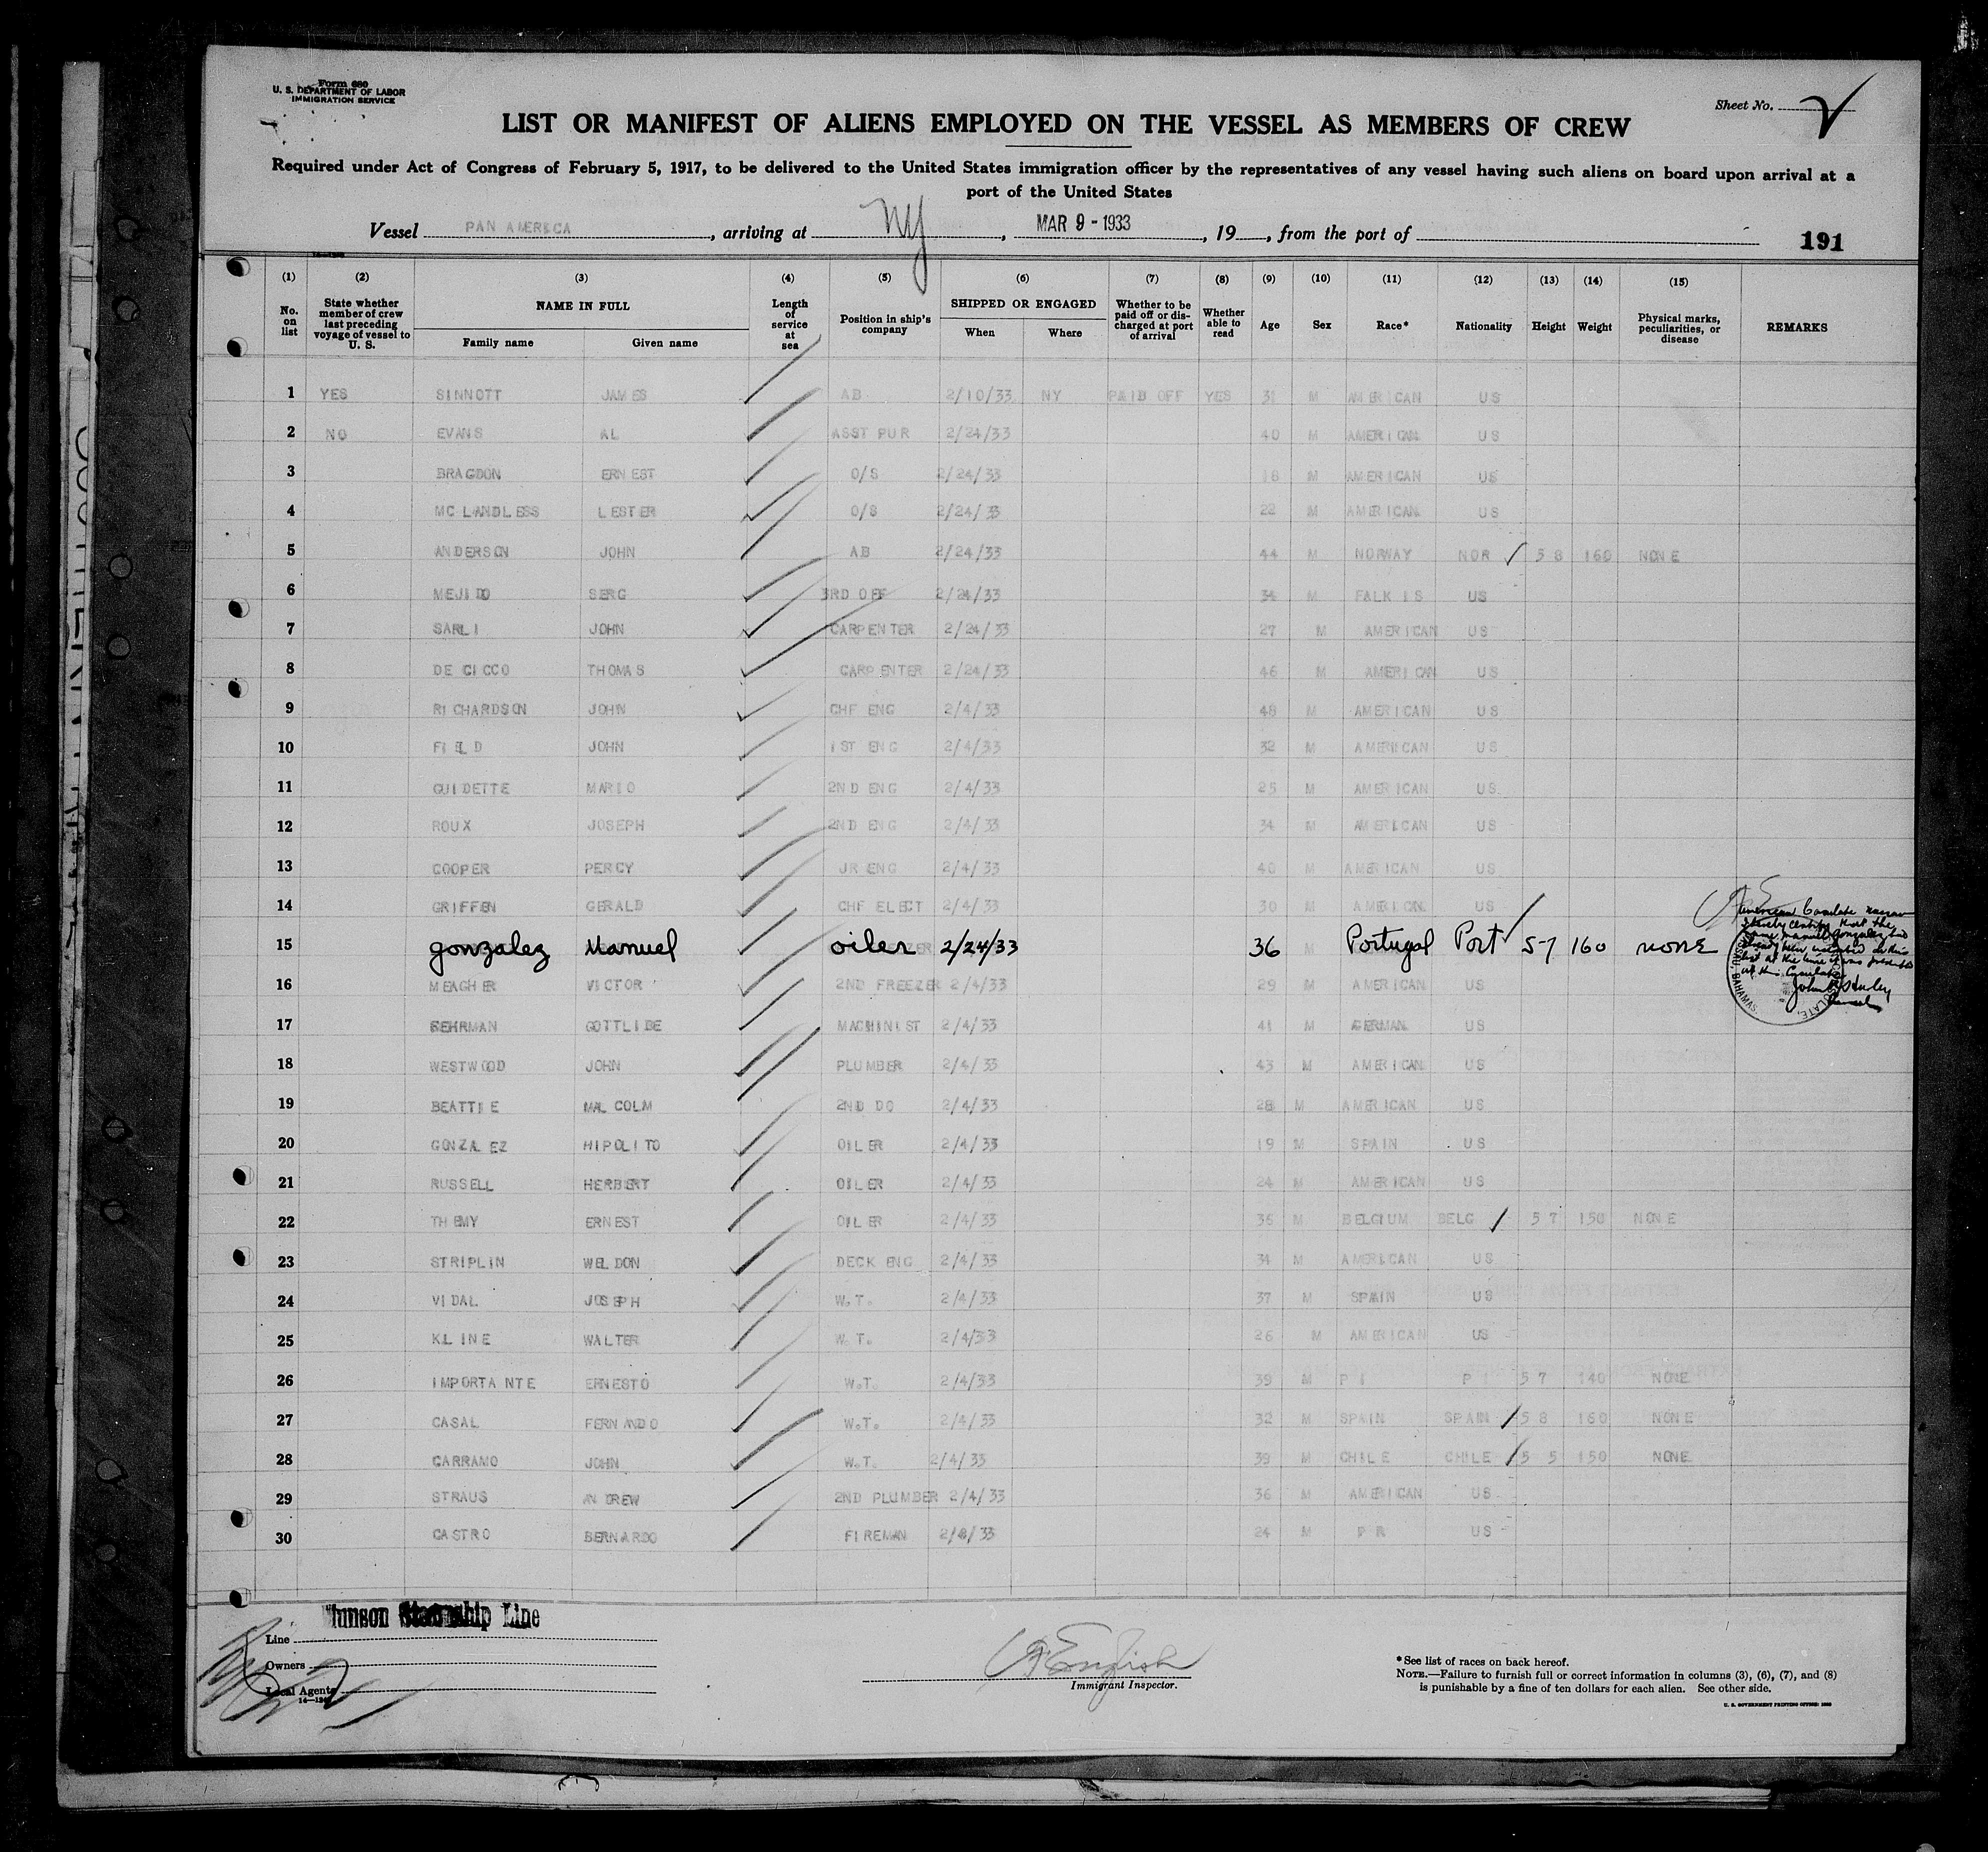 Form 680
U. S. DEPARTMENT OF LABOR
IMMIGRATION SERVICE
Sheet No.
LIST OR MANIFEST OF ALIENS EMPLOYED ON THE VESSEL AS MEMBERS OF CREW
Required under Act of Congress of February 5, 1917, to be delivered to the United States immigration officer by the representatives of any vessel having such aliens on board upon arrival at a
port of the United States
Vessel PAN AMERICA, arriving at NY, MAR 9 - 1933, 19, from the port of
191
(1) (2) (3) (4) (5) (6) (7) (8) (9) (10) (11) (12) (13) (14) (15)
No. on list State whether member of crew last preceding voyage of vessel to U. S. NAME IN FULL Family name Given name Length of service at sea Position in ship's company SHIPPED OR ENGAGED When Where Whether to be paid off or discharged at port of arrival Whether able to read Age Sex Race* Nationality Height Weight Physical marks, peculiarities, or disease REMARKS
1 YES SINNOTT JAMES AB 2/10/33 NY PAID OFF YES 31 M AMERICAN US
2 NO EVANS AL ASST PUR 2/24/33 40 M AMERICAN US
3 BRAGDON ERNEST O/S 2/24/33 18 M AMERICAN US
4 MC LANDLESS LESTER O/S 2/24/33 22 M AMERICAN US
5 ANDERSON JOHN AB 2/24/33 44 M NORWAY NOR 5 8 160 NONE
6 MEJIDO SERG 3RD OFF 2/24/33 34 M FALK IS US
7 SARLI JOHN CARPENTER 2/24/33 27 M AMERICAN US
8 DE CICCO THOMAS CARPENTER 2/24/33 46 M AMERICAN US
9 RICHARDSON JOHN CHF ENG 2/4/33 48 M AMERICAN US
10 FIELD JOHN 1ST ENG 2/4/33 32 M AMERICAN US
11 GUIDETTE MARIO 2ND ENG 2/4/33 25 M AMERICAN US
12 ROUX JOSEPH 2ND ENG 2/4/33 34 M AMERICAN US
13 COOPER PERCY JR ENG 2/4/33 40 M AMERICAN US
14 GRIFFEN GERALD CHF ELECT 2/4/33 30 M AMERICAN US
15 gonzalez Manuel oiler 2/24/33 36 M Portugal Port 5-7 160 none
American Consulate Nassau
I hereby certify that the
name Manuel Gonzalez had
already been
list at the time it was presented
at this Consulate
John
Consul
NASSAU, BAHAMAS.
16 MEAGHER VICTOR 2ND FREEZER 2/4/33 29 M AMERICAN US
17 BEHRMAN GOTTLIBE MACHINIST 2/4/33 41 M GERMAN US
18 WESTWOOD JOHN PLUMBER 2/4/33 43 M AMERICAN US
19 BEATTIE MALCOLM 2ND DO 2/4/33 28 M AMERICAN US
20 GONZALEZ HIPOLITO OILER 2/4/33 19 M SPAIN US
21 RUSSELL HERBERT OILER 2/4/33 24 M AMERICAN US
22 THEMY ERNEST OILER 2/4/33 36 M BELGIUM BELG 5 7 150 NONE
23 STRIPLIN WELDON DECK ENG 2/4/33 34 M AMERICAN US
24 VIDAL JOSEPH W.T. 2/4/33 37 M SPAIN US
25 KLINE WALTER W.T. 2/4/33 26 M AMERICAN US
26 IMPORTANTE ERNESTO W.T. 2/4/33 39 M P I P I 5 7 140 NONE
27 CASAL FERNANDO W.T. 2/4/33 32 M SPAIN SPAIN 5 8 160 NONE
28 CARRAMO JOHN W.T. 2/4/33 39 M CHILE CHILE 5 5 150 NONE
29 STRAUS ANDREW 2ND PLUMBER 2/4/33 36 M AMERICAN US
30 CASTRO BERNARDO FIREMAN 2/4/33 24 M P R US
Line Munson Steamship Line
Owners
Local Agents
English
Immigrant Inspector.
*See list of races on back hereof.
NOTE.—Failure to furnish full or correct information in columns (3), (6), (7), and (8)
is punishable by a fine of ten dollars for each alien. See other side.
U. S. GOVERNMENT PRINTING OFFICE